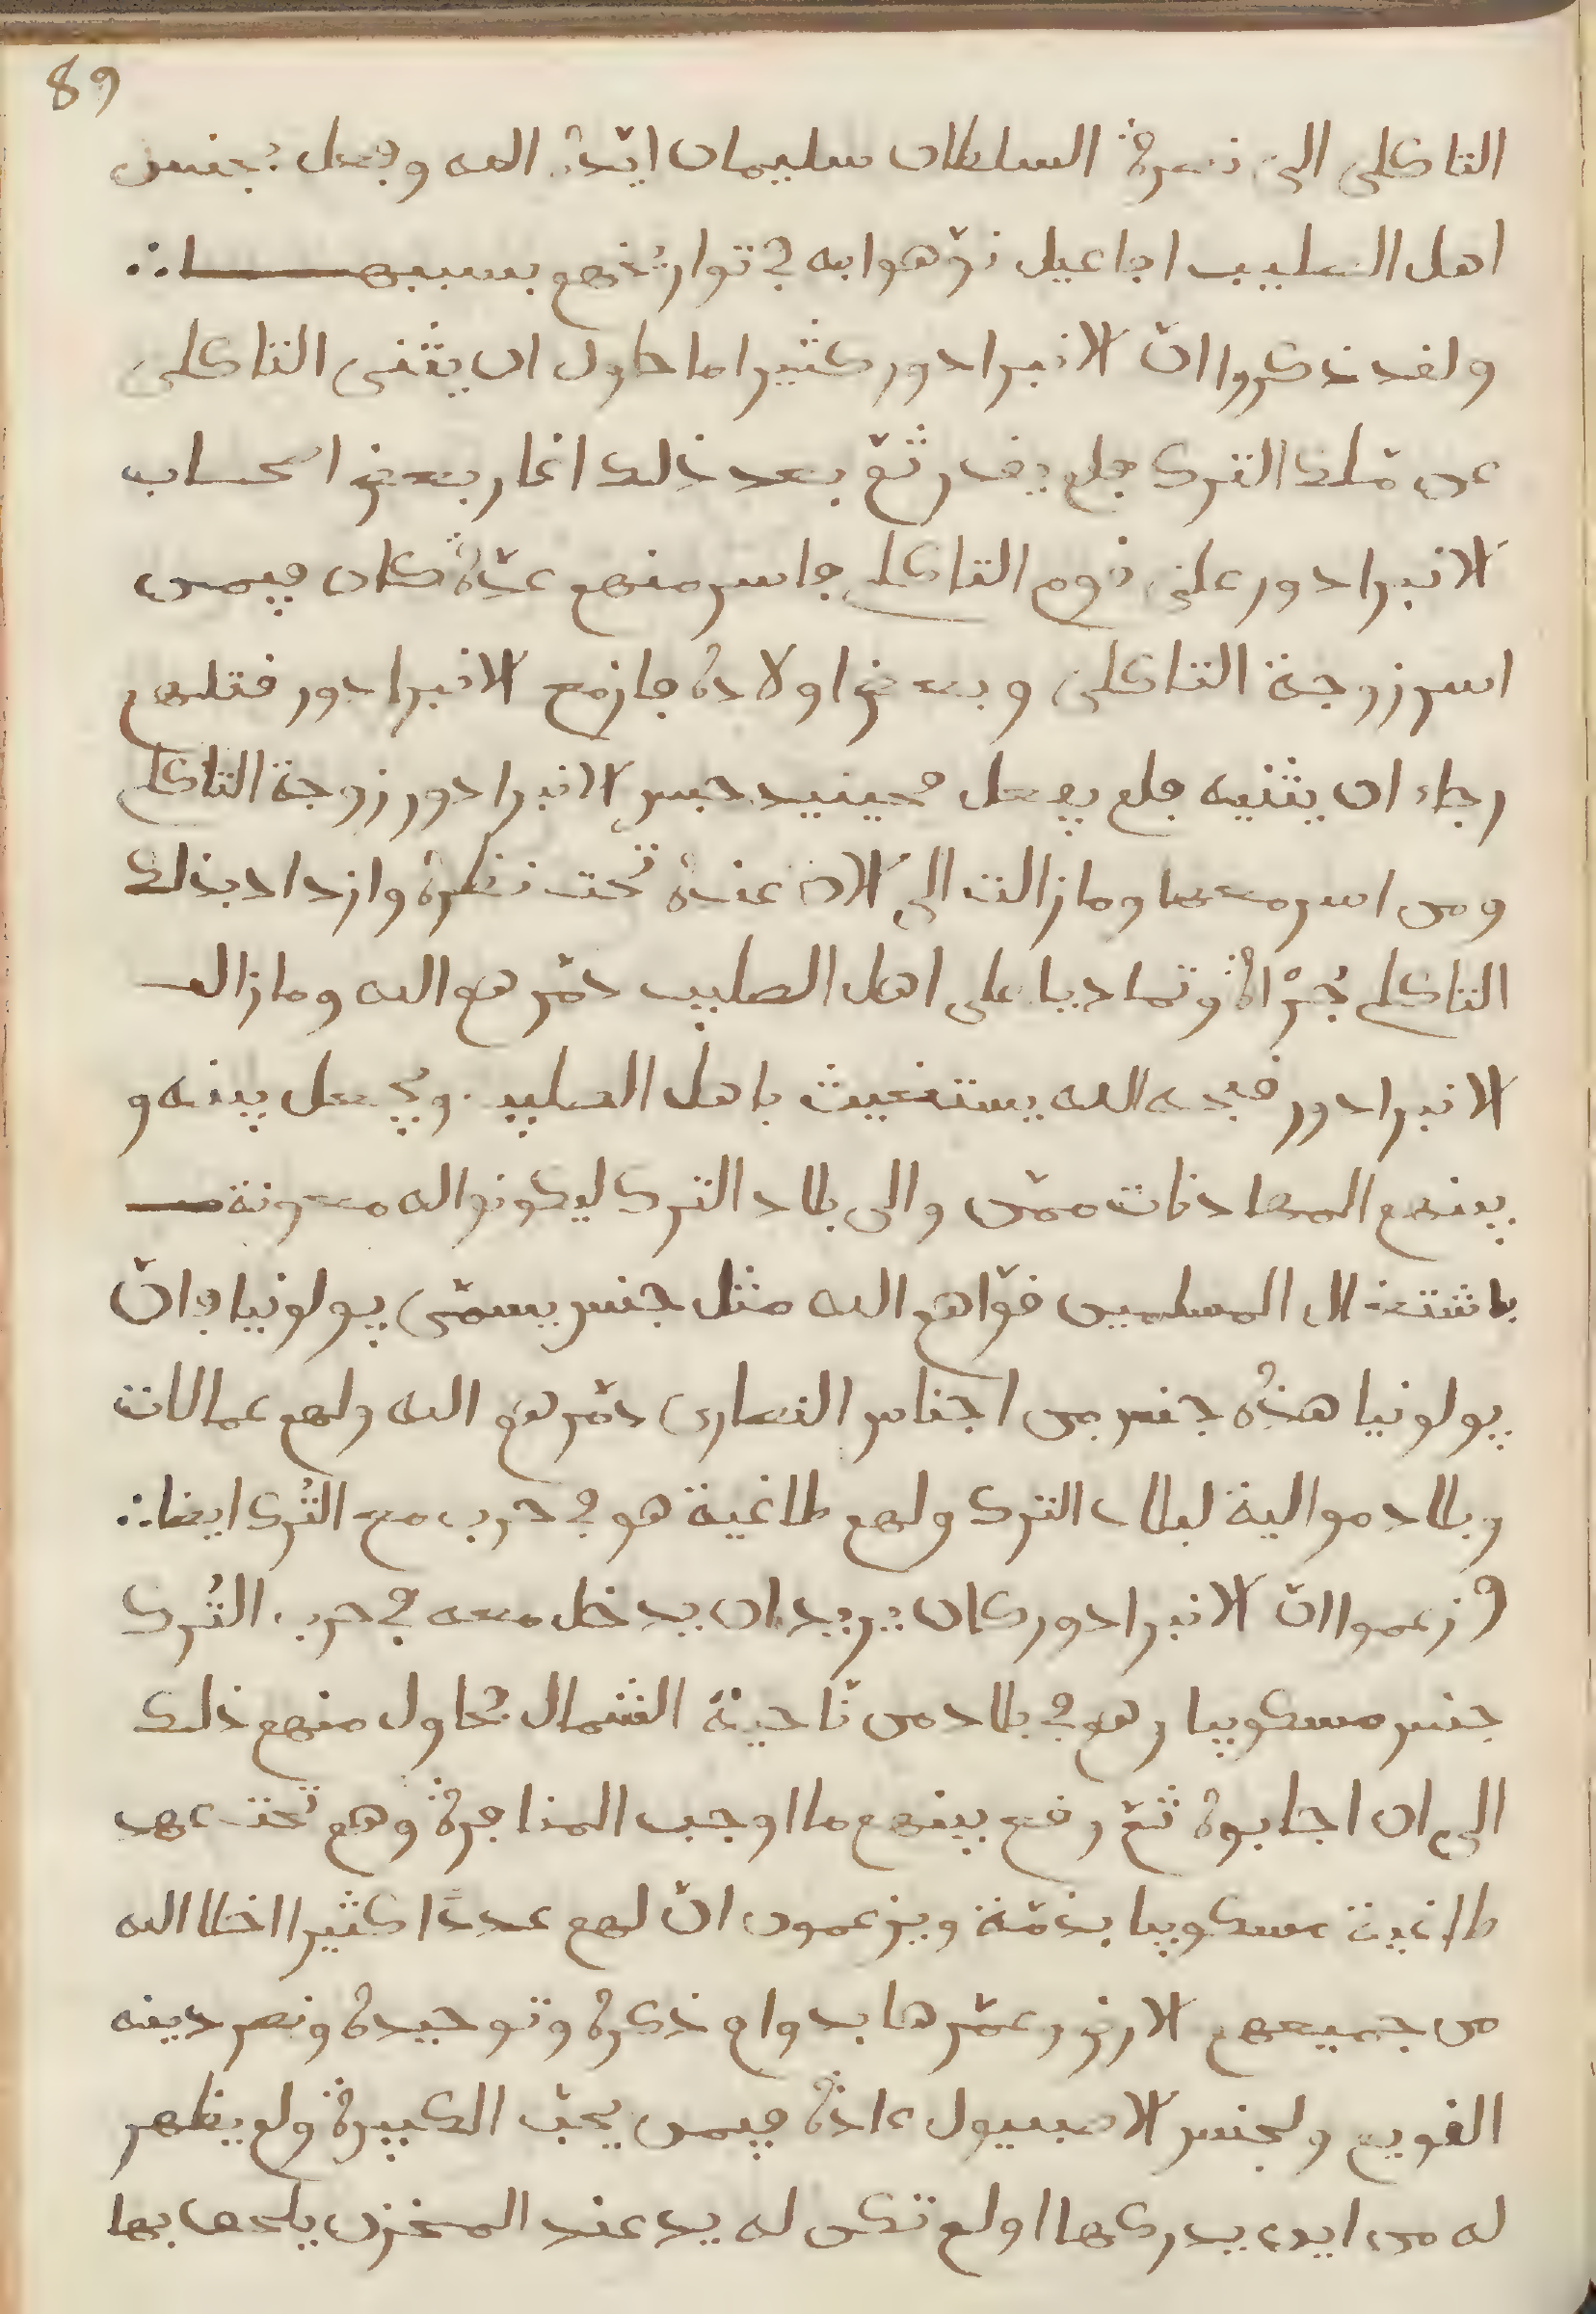 89
التاكلي الى نصرة السلطان سليمان ايّده الله وفعل بجنس
اهل الصليب افاعيل نوّهوا به في تواريخهم بسببها ∴
ولقد ذكروا انّ الانبرادور كثيرا ما حاول ان يثنى التاكلى
عن مَلك الترك فلم يقدر ثمّ بعد ذلك اغار بعض اصحاب
الانبرادور على قوم التاكلي فاسر منهم عدّة كان فيمن
اسر زوجة التاكلى وبعض اولاده فازمع الانبرادور قتلهم
رجاء ان يثنيه فلم يفعل فحينيد حبس الانبرادور زوجة التاكلي
ومن اسر معها وما زالت الى الان عنده تحت نظره وازداد بذلك
التاكلي جُرْاة وتماديا على اهل الصليب دمّرهم الله وما زال
الانبرادور قبحه الله يستغيث باهل الصليب ويجعل بينه و
بينهم المهادنات ممّن والى بلاد الترك ليكونوا له معونة
باشتغال المسلمين قوّاهم الله مثل جنس يسمّى بولونيا فانّ
بولونيا هذه جنس من اجناس النصارى دمّرهم الله ولهم عمالات
وبلاد موالية لبلاد الترك ولهم طاغية هو في حرب مع التُرك ايضا ∴
وزعموا انّ الانبرادور كان يريد ان يدخل معه في حرب التُرك
جنس مسكوبيا وهم في بلاد من ناحية الشمال فحاول منهم ذلك
الى ان اجابوه ثمّ رفع بينهم ما اوجب المنافرة وهم تحت عهد
طاغية مسكوبيا بذمّة ويزعمون انّ لهم عددًا كثيرا اخلا الله
من جميعهم الارض وعمّرها بدوام ذكره وتوحيده ونصر دينه
القويم ولجنس الاصبنيول عادة فيمن يحبّ الكبيرة ولم يظهر
له من اين يدركها او لم تكن له يد عند المخزن يلحق بها